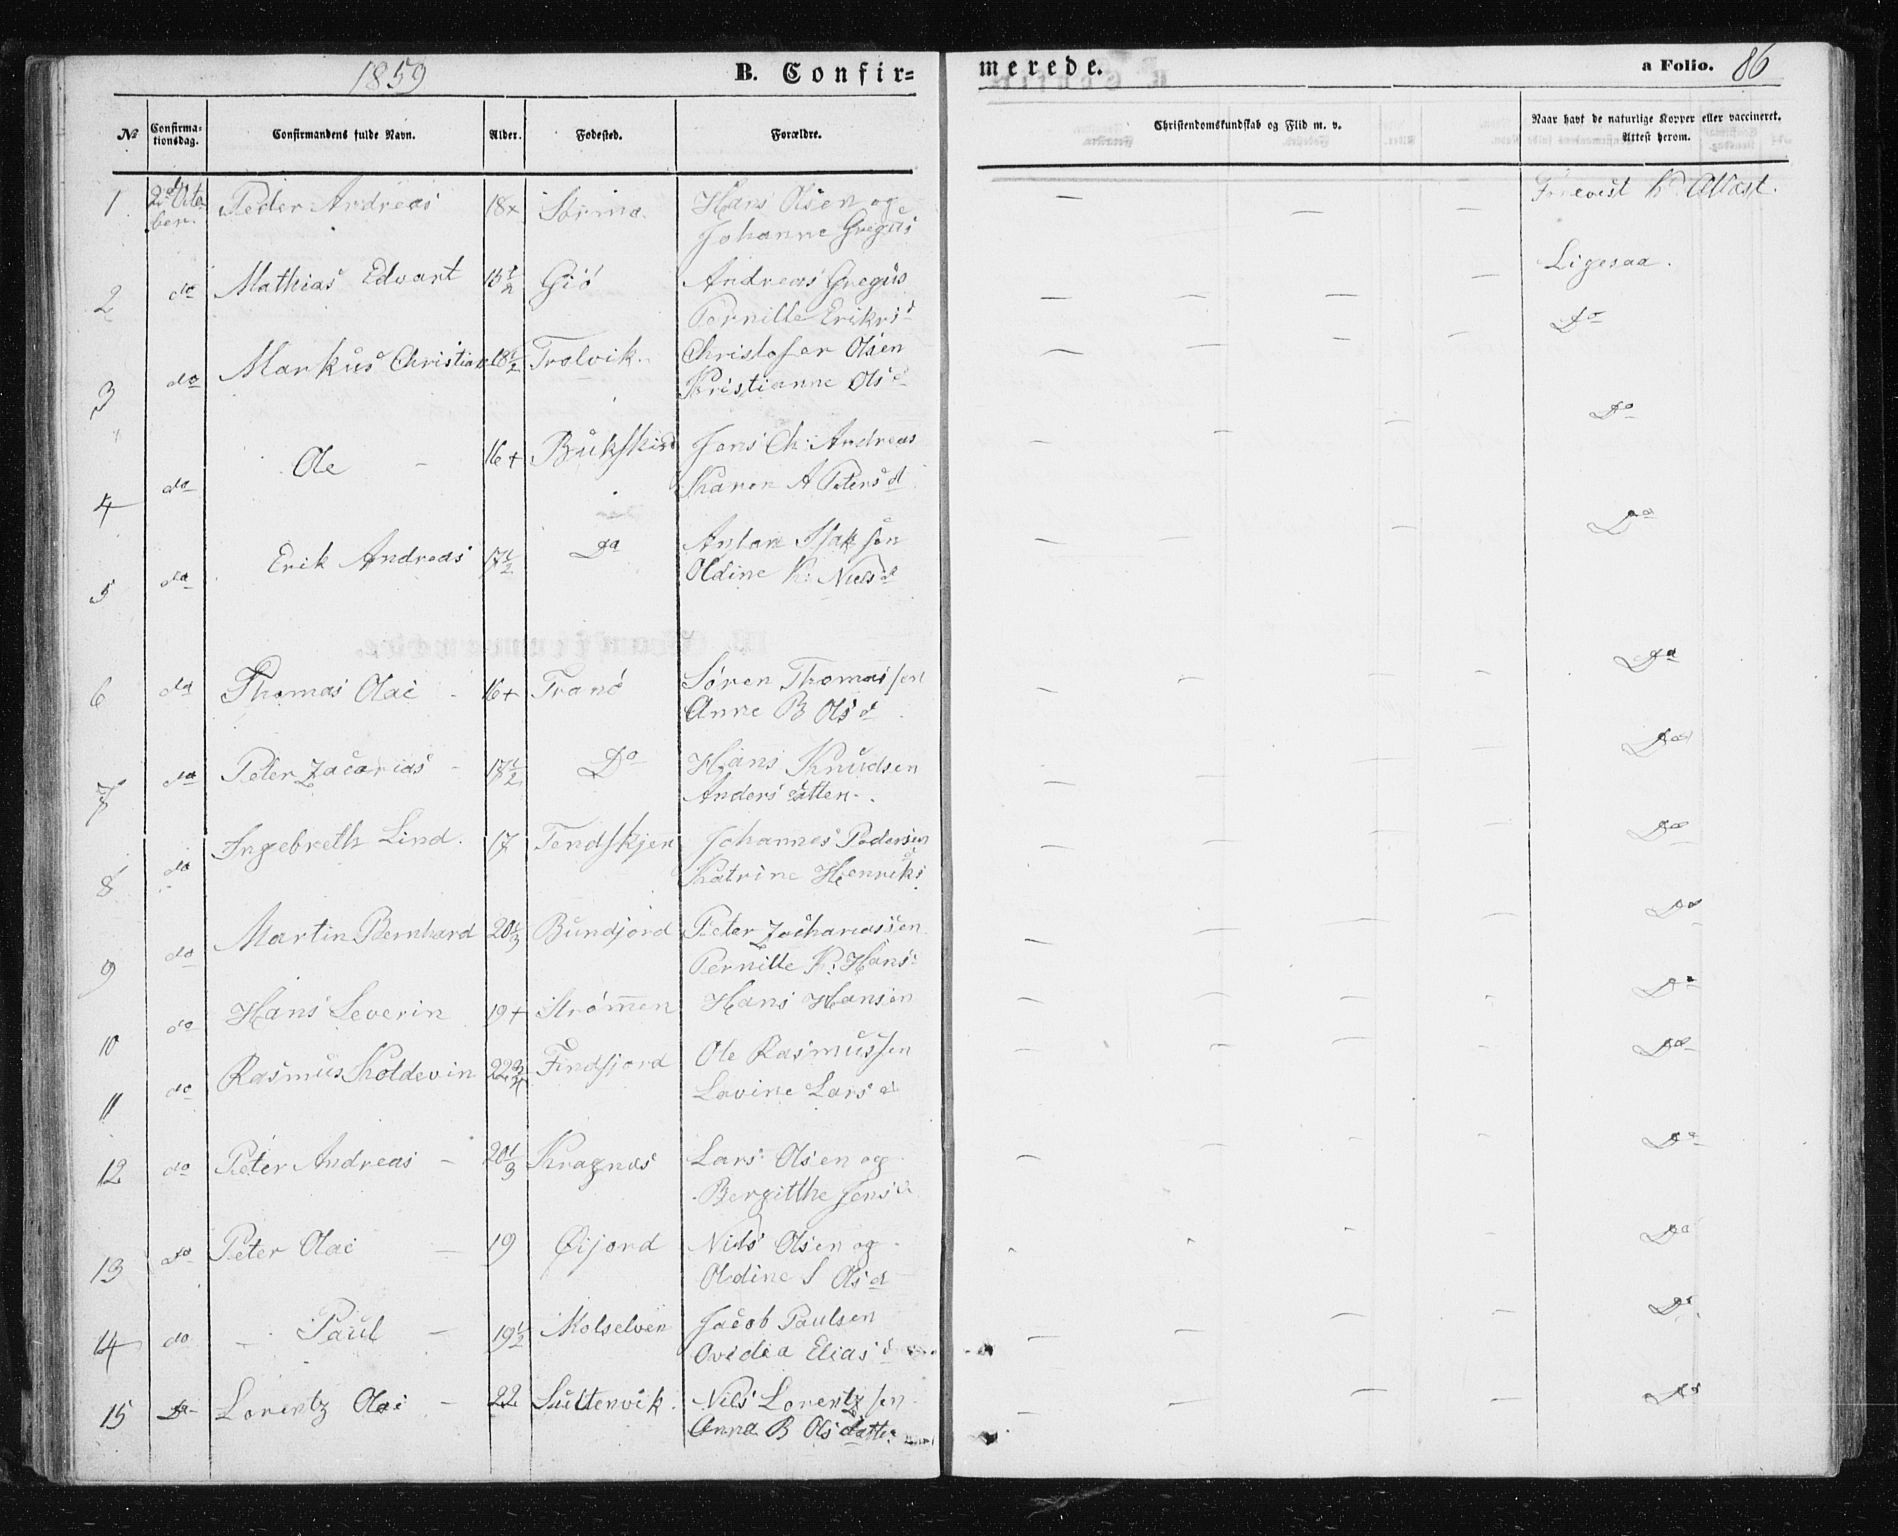 1859 B. Confirmerede. a Folio. 86
№ Confirmationsdag. Confirmandens fulde Navn. Alder. Fødested. Forældre. Christendomskundskab og Flid m. v. Naar havt de naturlige Kopper eller vaccineret. Attest herom.
1 2d Octo- Peder Andreas 18+ Hans Olsen og — — — Attest.
ber. Johanne Gregus
2 do Mathias Edvart Giö Andreas Gregus — — — — Ligesaa.
Pernille Eriksd
3 do Markus Christian 18½ Trolvik Christofer Olsen — — — — Do
Kristianne Olsd
4 do Ole — 16+ Jens Ch: Andreas — — — — Do
Karen A Petersd
5 do Erik Andreas 17½ Do Isaksen — — — Do
Oldine K: Nielsd
6 do Thomas Olai - 16+ Tranö Sören Thomassen — — — — Do
Anne B Olsd
7 do Peter Zacarias - 17½ Do Hans Knudsen — — — — Do
Andersdatter.
8 do Ingebreth Lind. 17 Tendskjer Johannes Pedersen — — — — Do
Katrine Henriksd
9 do Martin Bernhard 20⅓ Bundjord Peter Zachariassen — — — — Do
Pernille K: Hans:
10 do Hans Severin 19+ StröMen Hans Hansen — — — — Do
11 do Rasmus Koldevin 22¾ Findfjord Ole Rasmussen — — — — Do
Lovine Larsd
12 do Peter Andreas — 20⅓ Kragnæs Lars Olsen og — — — — Do
Bergitthe Jensd
13 do Peter Olai — 19 Øijord Nils Olsen og - - - - Do
Oldine S Olsd
14 do — Paul — 19½ Molselven Jacob Paulsen — — — — Do
Ovidia Eliasd
15 Do Lorentz Olai — 22 Sultenvik. Nils Lorentzsen — — — — Do
Anna B Olsdatter